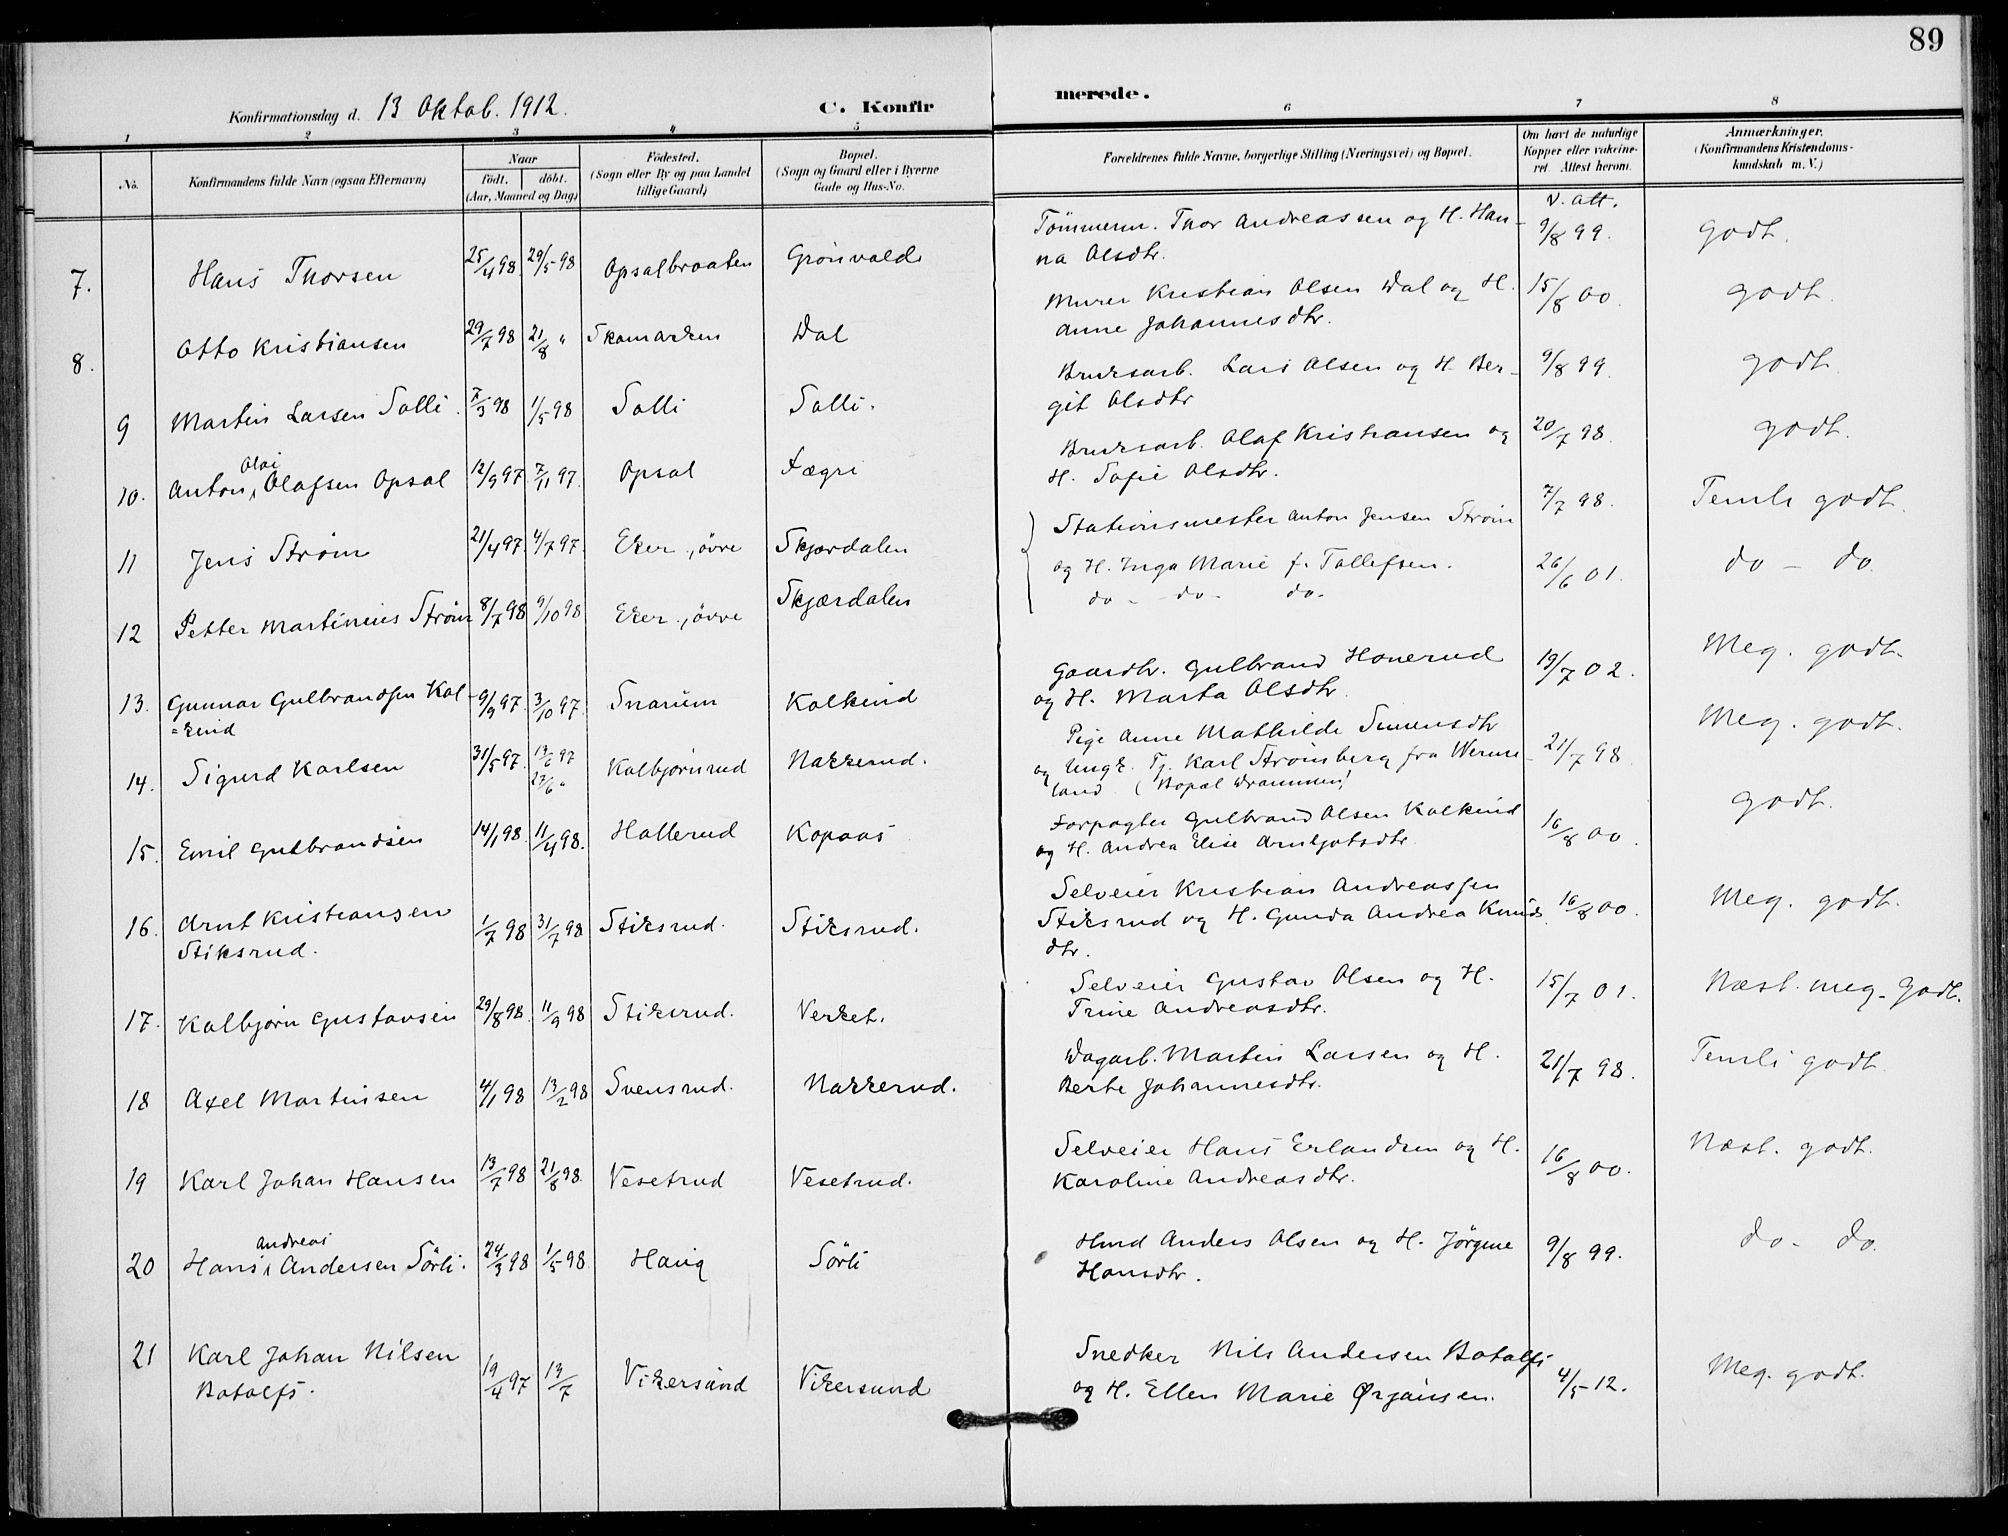 89
Konfirmationsdag d. 13 Oktob. 1912.
C. Konfir
merede.
1 2 3 4 5 6 7 8
No.
Konfirmandens fulde Navn (ogsaa Efternavn)
Naar
født. døbt.
(Aar, Maaned og Dag)
Fødested.
(Sogn eller By og paa Landet
tillige Gaard)
Bopæl.
(Sogn og Gaard eller i Byerne
Gade og Hus-No.
Forældrenes fulde Navne, borgerlige Stilling (Næringsvei) og Bopæl.
Om havt de naturlige
Kopper eller vakcine-
ret. Attest herom.
Anmærkninger.
(Konfirmandens Kristendoms-
kundskab m. V.)
V. att.
7. Hans Thorsen 25/4 98. 29/5 98 Opsalbraaten Grönvold
Tömmerm. Thor Andreassen og H. Han-
na Olsdtr. 9/8 99. Godt.
8. Otto Kristiansen 29/7 98 21/8 " Skamarken Dal
Murer Kristian Olsen Dal og H.
Anne Johannesdtr. 15/8 00. godt.
9 Martin Larsen Solli. 7/3 98 1/5 98 Solli Solli.
Bruksarb. Lars Olsen og H. Ber-
git Olsdtr 9/8 99. godt.
Olai
10. Anton Olafsen Opsal 12/9 97 7/11 97. Opsal Fægri
Bruksarb. Olaf Kristiansen og
H. Sofie Olsdtr. 20/7 98. godt.
11 Jens Strøm 21/4 97. 4/7 97. Eker, övre Skjærdalen
Stationsmester Anton Jensen Strøm
og H. Inga Marie f. Tollefsen. 7/7 98. Temli godt.
12 Petter Martinius Strøm 8/7 98 9/10 98 Eker, övre Skjærdalen
do - do - do. 26/6 01. do - do
13. Gunnar Gulbrandsen Kol-
=kind 9/9 97. 3/10 97. Snarum Kolkind
Gaardbr. Gulbrand Honerud
og H. Marta Olsdtr. 19/7 02. Meg. godt.
14. Sigurd Karlsen 31/5 97. 13/6 97 27/6 " Kolbjörnsrud Nakkerud.
Pige Anne Mathilde Simensdtr
og Ungk. Tj. Karl Strømberg fra Werme-
land. (Bopæl Drammen) 21/7 98 Meg. godt.
15. Emil Gulbrandsen 14/1 98. 11/4 98. Hallerud Kopaas
Forpagter Gulbrand Olsen Kolkind
og H. Andrea Elise Arnljotsdtr. 16/8 00. godt.
16. Arnt Kristiansen
Stiksrud. 1/7 98 31/7 98 Stiksrud. Stiksrud.
Selveier Kristian Andreassen
Stiksrud og H. Gunda Andrea Knuds
dtr. 16/8 00. Meg. godt.
17. Kolbjørn Gustavsen 29/8 98. 11/9 98 Stiksrud. Verket.
Selveier Gustav Olsen og H.
Trine Andreasdtr. 15/7 01. Næst. meg. godt.
18 Axel Martinsen 4/1 98 13/2 98 Svensrud. Nakkerud.
Dagarb. Martin Larsen og H.
Berte Johannesdtr. 21/7 98. Temli godt.
19 Karl Johan Hansen 13/7 98 21/8 98. Vesetrud Vesetrud.
Selveier Hans Erlandsen og H.
Karoline Andreasdtr. 16/8 00. Næst. godt.
Andreas
20 Hans Andersen Sörli. 24/3 98 1/5 98 Haug Sörli
Hmd Anders Olsen og H. Jörgine
Hansdtr. 9/8 99. do - do.
21 Karl Johan Nilsen
Botolfs. 19/4 97 19/7 Vikersund Vikersund
Snedker Nils Andersen Botolfs
og H. Ellen Marie Ørjansen. 4/5 12. Meg. godt.